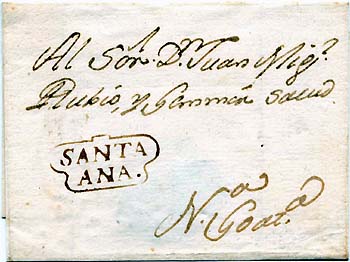 Al Sor. Dn. Juan Migl.
Rubio, y Gemmir salud
SANTA
ANA.
N.a Goat.a